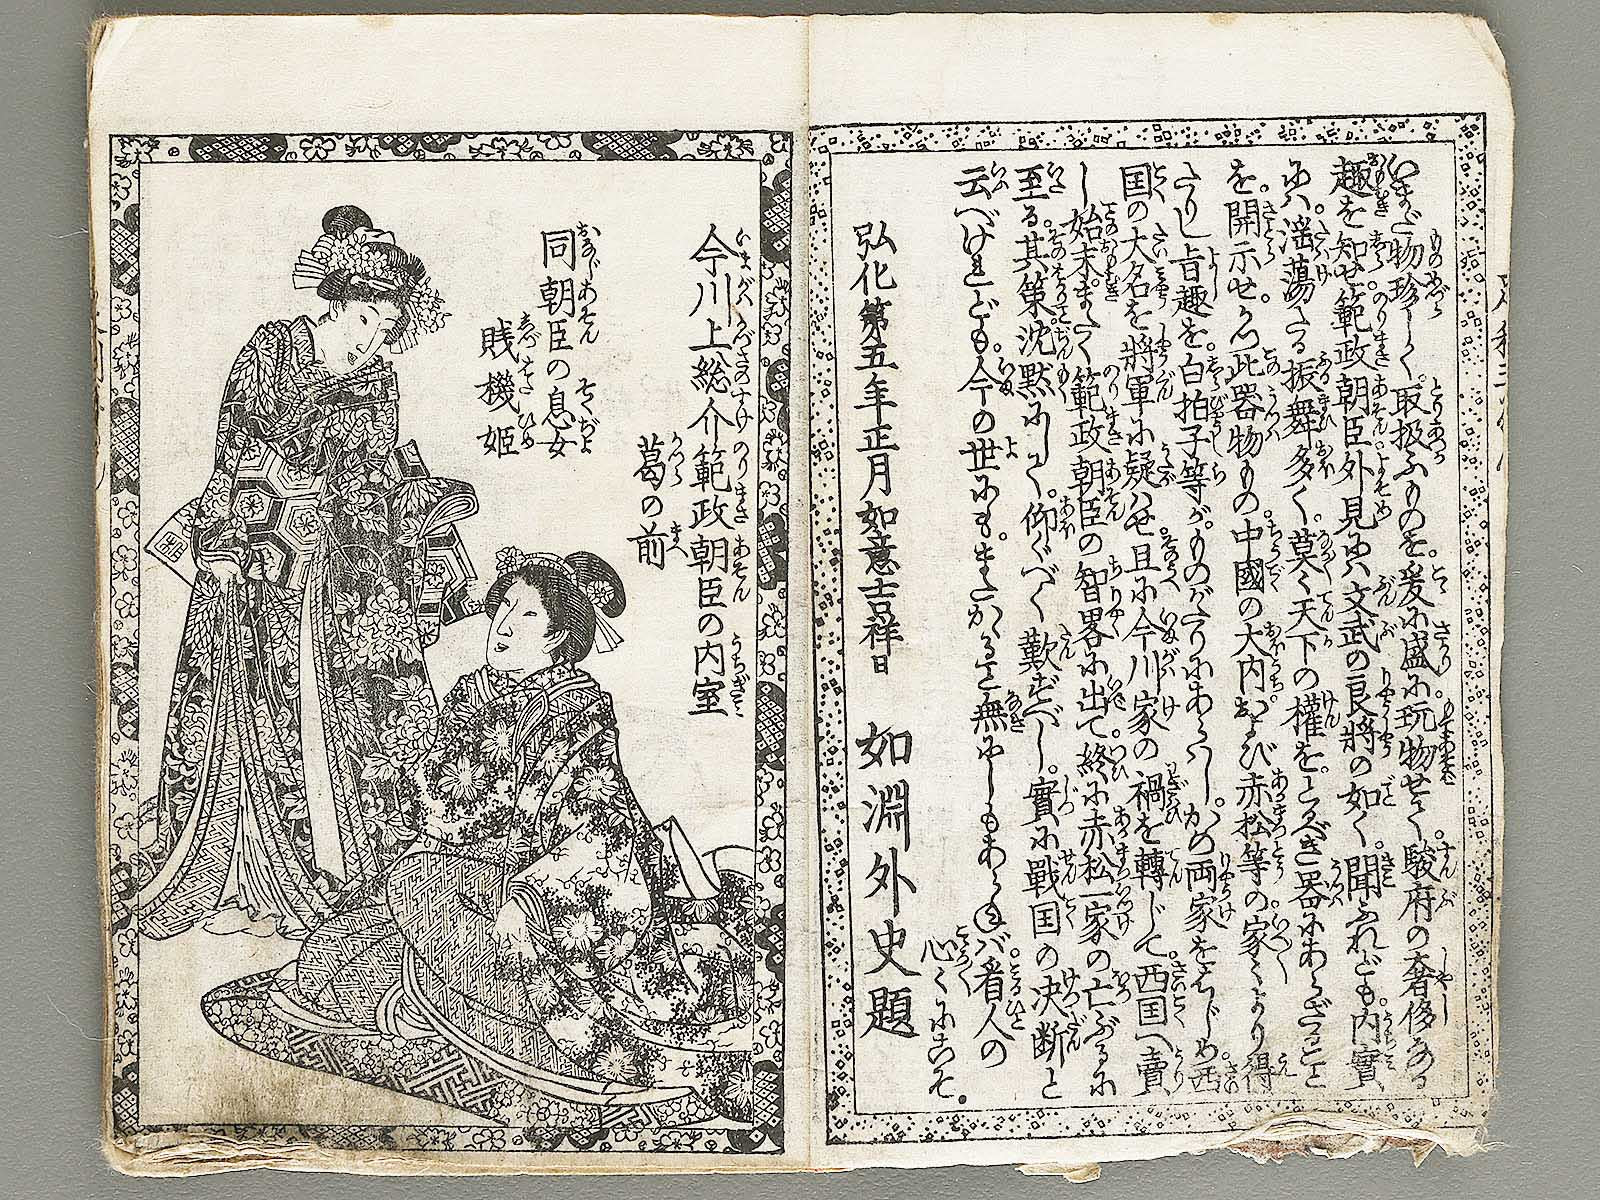 いまだ物珍しく。取扱ふものを。爰に盛に玩物せて。駿府の奢侈なる
趣を知せ。範政朝臣外見には文武の良将の如く。聞ふれども。内實
には。滛蕩たる振舞多く。莫々天下の權を。とるべき器にあらざること
を。開示せかし。此器物もの。中國の大内および赤松等の家々より得
たりし旨趣を。白拍子等が。ものがたりにあらはし。かの両家をはじめ。西
国の大名を。將軍に疑はせ。且に今川家の禍を轉じて。西国へ賣
し始末。またく範政朝臣の智畧に出て。終に赤松一家の亡ぶるに
至る。其策沈黙にして。仰ぐべく歎ずべし。實に戰国の決断と
云べけれども。今の世にも。またかゝること無にしもあらねば。看人の
心々にこそ。
弘化第五年正月如意吉祥日 如淵外史題
今川上総介範政朝臣の内室
葛の前
同朝臣の息女
賎機姫